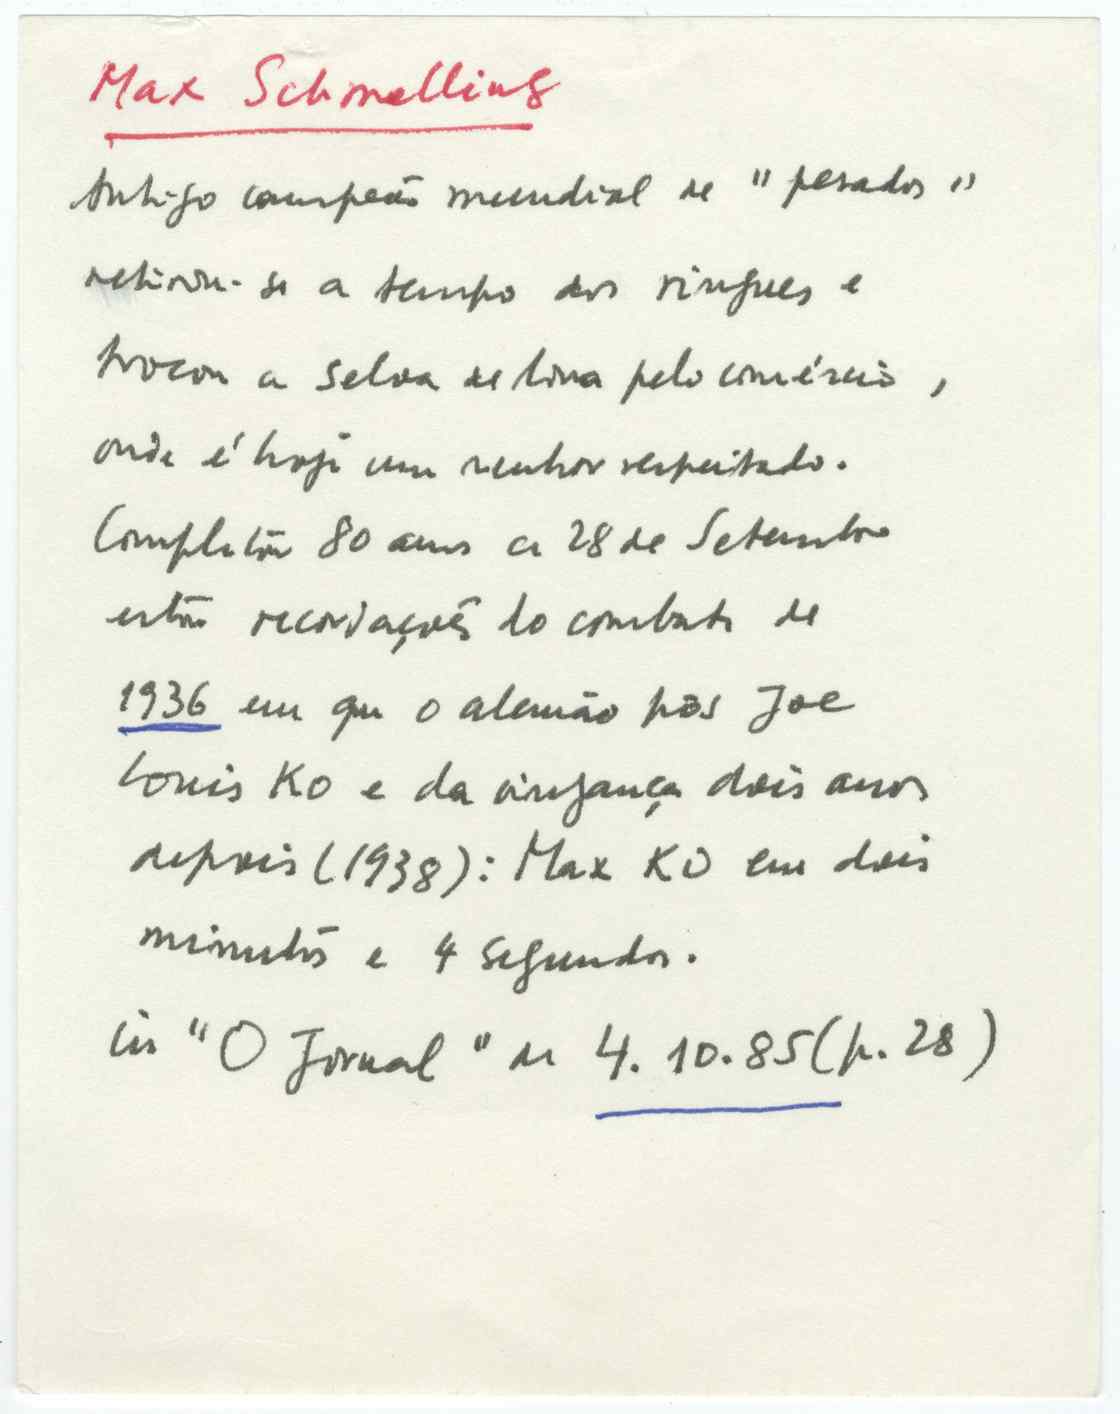 Max Schmelling
Antigo campeão mundial de "pesados"
retirou-se a tempo dos ringues e
trocou a selva de lona pelo comércio,
onde é hoje um senhor respeitado.
Completou 80 anos a 28 de Setembro
estão recordações do combate de
1936 em que o alemão pôs Joe
Louis KO e da vingança dois anos
depois (1938): Max KO em dois
minutos e 4 segundos.
in "O Jornal" de 4.10.85 (p. 28)